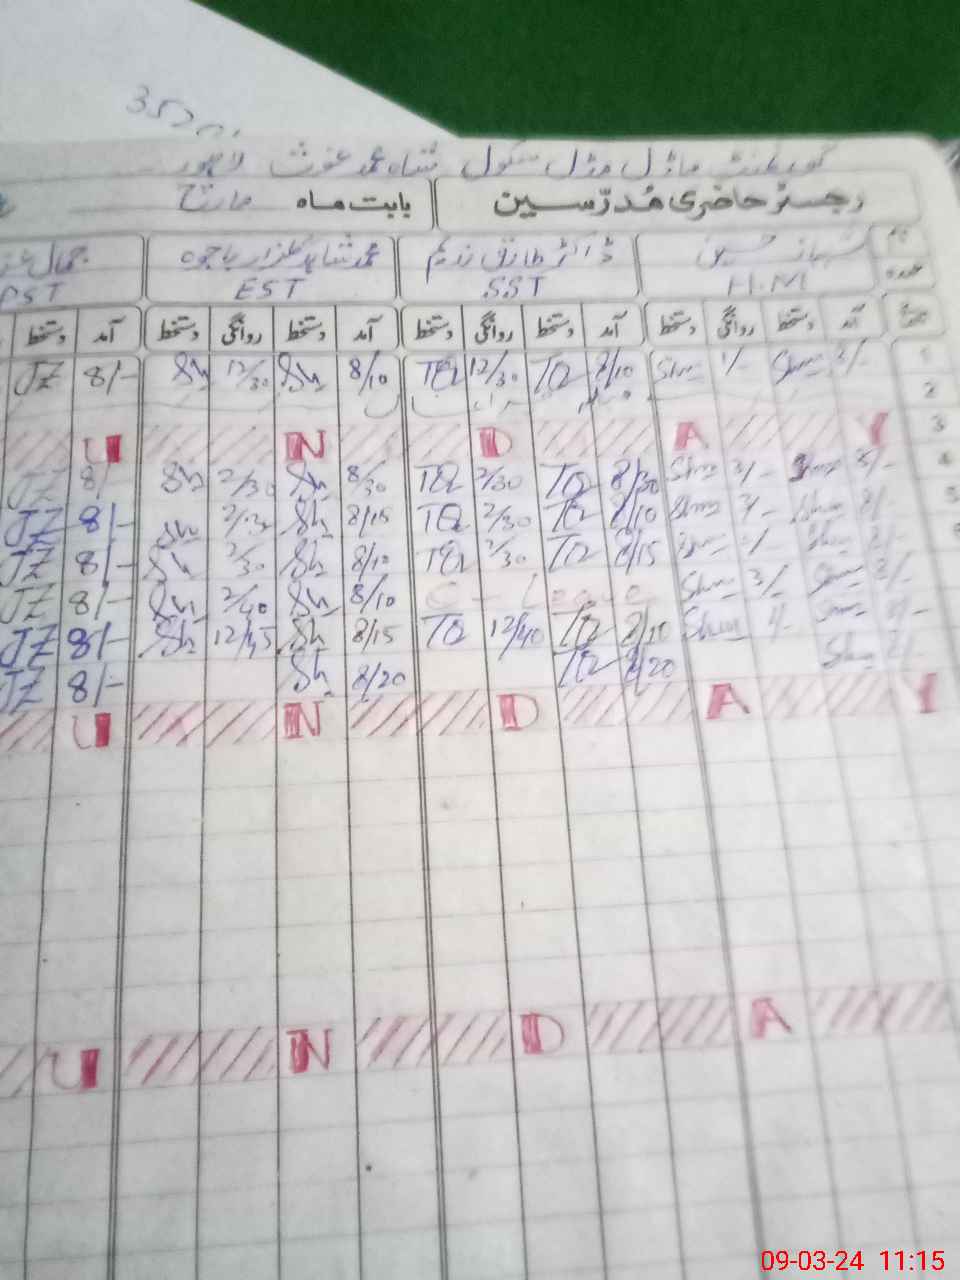 352
گورنمنٹ ماڈل مڈل سکول شاہ محمد غوث لاہور
رجسٹر حاضری مُدرّسین بابت ماہ مارچ
نام شہباز حسین ڈاکٹر طارق ندیم محمد شاہد گلزار باجوہ جمال
عہدہ H.M SST EST PST
آمد دستخط روانگی دستخط آمد دستخط روانگی دستخط آمد دستخط روانگی دستخط آمد دستخط
1 8/- Shm 1/- Shm 8/10 TQ 12/30 TQ 8/10 Sh 12/30 Sh 8/- JZ
2
3 Y A D N U
4 8/- Shm 3/- Shm 8/30 TQ 2/30 TQ 8/30 Sh 2/30 Sh 8/- JZ
5 8/- Shm Shm 8/10 TQ 2/30 TQ 8/15 Sh 2/30 Sh 8/- JZ
8/- Shm Shm 8/15 TQ 2/30 TQ 8/10 Sh 2/30 Sh 8/- JZ
8/- Shm 3/- Shm C - Leave 8/10 Sh 2/40 Sh 8/- JZ
8/- Shm 1/- Shm 8/20 TQ 12/40 TQ 8/15 Sh 12/45 Sh 8/- JZ
8/- Shm 8/20 TQ 8/20 Sh 8/- JZ
Y A D N U
A D N U
09-03-24 11:15